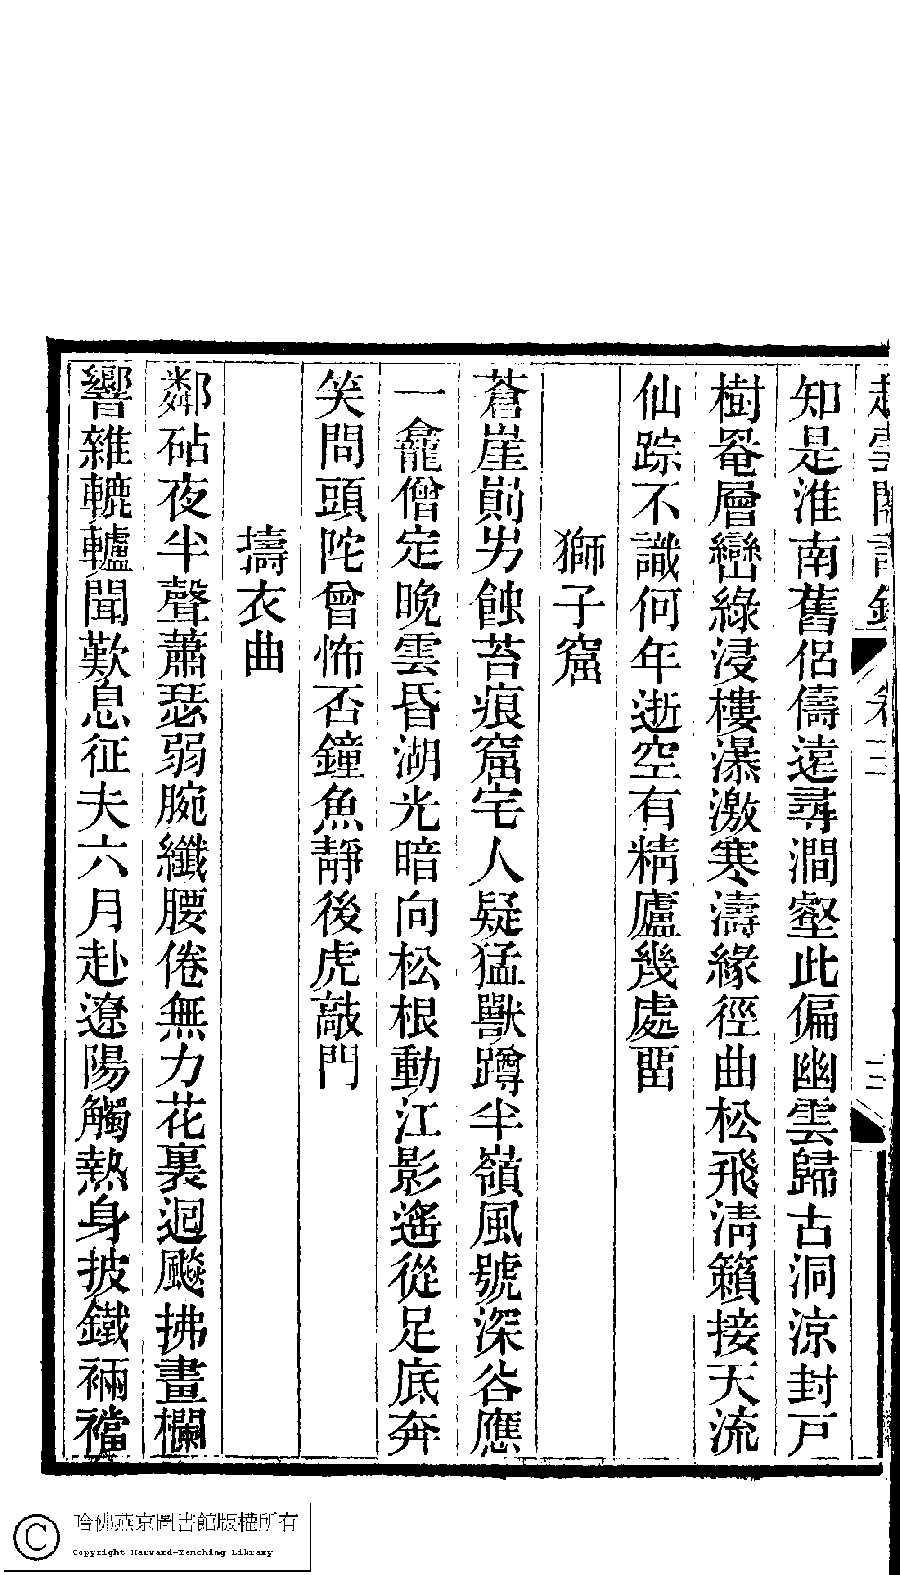 知是淮南舊侶儔遠尋澗壑此偏幽雲歸古洞涼封戸
樹罨層巒綠浸樓瀑激寒濤緣徑曲松飛清籟接天流
仙踪不識何年逝空有精廬幾處畱
獅子窟
蒼崖崱屴蝕苔痕窟宅人疑猛獸蹲半嶺風號深谷應
一龕僧定晚雲昏湖光暗向松根動江影遙從足底奔
笑問頭陀曾怖否鐘魚靜後虎敲門
擣衣曲
鄰砧夜半聲蕭瑟弱腕纖腰倦無力花裏迴飈拂畫欄
響雜轆轤聞歎息征夫六月赴遼陽觸熱身披鐵裲襠
哈佛燕京圖書館版權所有
Copyright Harvard-Yenching Library